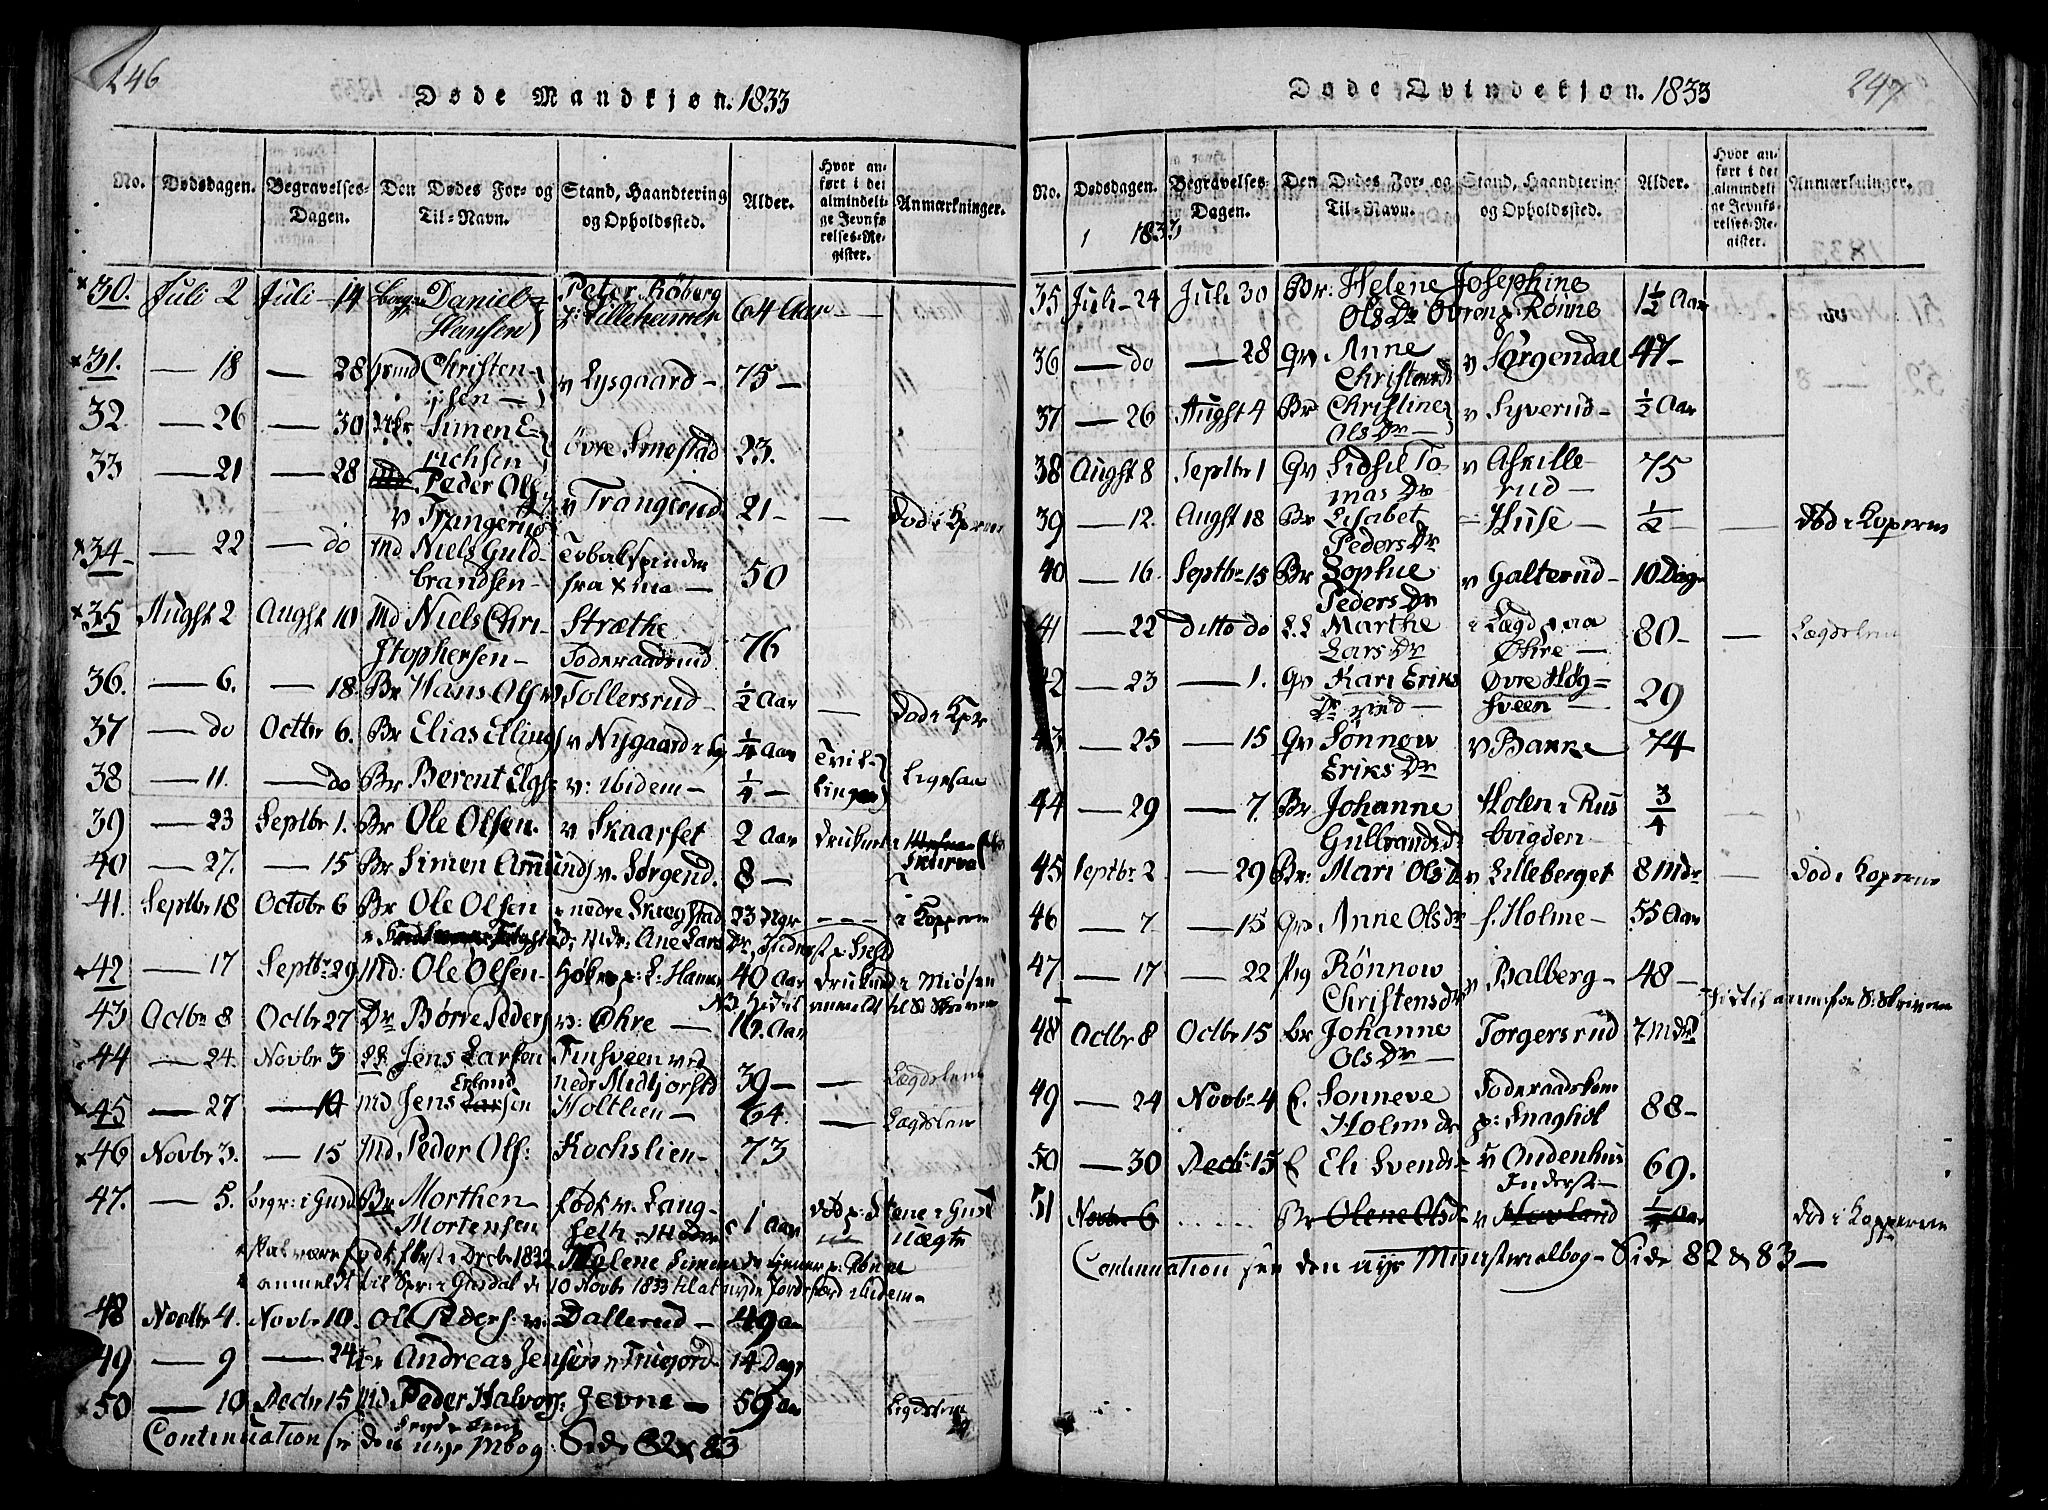 246
Døde Mandkjøn. 1833
No. Dødsdagen. Begravelses-Dagen. Den Dødes For- og Til-Navn. Stand, Haandtering og Opholdssted. Alder. Hvor anført i det almindelige Jevnførelses-Register. Anmærkninger.
30. Juli 2 Juli 14 Daniel Hansen Peter Röberg Lillehamer 64 Aar
31. — 18 — 28 Christensen v Lysgaard 75 —
32. — 26 — 30 Simen Erichsen Øvre Smestad 23.
33 — 21 — 28 Peder Ols v Trangerud v Trangerud 21 — — Død i Kperne
34 — 22 — do Md Niels Guldbrandsen Tobakspinder fra 50
35 Augst 2 Augst 10 Md Niels Christophersen Stræthe Foderaadsmd 76
36. — 6. — 18 Br Hans Ols v Tollersrud ½ Aar — Død i Kpr
37 — do Octbr 6. Br Elias Ellings v Nygaard ¼ Aar Tvillinger
38 — 11. — do Br Berent Elgs v: ibidem ¼ — Ligesaa
39 — 23 Septbr 1. Br Ole Olsen. v Skaarset 2 Aar Druknet i
40 — 27. — 15 Br Simen Amund v. Sørgend. 8 —
41. Septbr 18 Octobr 6 Br Ole Olsen nedre Skægstad 23 Ugr i Kopperne
Mdr: Ane Lars Dr, Inderst
42 — 17 Septbr 29 Md: Ole Olsen L. Hamer 40 Aar Druknet i Miøsen
43 Octbr 8 Octbr 27 Dr Børre Peders v: Øhre — 16. Aar anmeldt til
44 — 24. Novbr 3 LL Jens Larsen Finsveen ved nedr Midtjorstd 39 — — Lægdslem
45 — 27 — 14 Md Jens Erlandsen Holtlien 64. — Lægdslem
46 Novbr 3. — 15 Md Peder Ols: Kochslien 73
47. — 5. begr: i Gusd Br Morthen Mortensen født v. Langseth 1 Aar død
skal være født først i Decbr 1832 Helene
anmeldt til i Gusdal d 10 Novbr 1833 til at nyde Jordsfærd ibidem
48 Novbr 4. Novbr 10. Ole Peders: v. Dallerud 49 Aar
49 — 9 — 24 Andreas Jensen 14 Dage
50 — 10 Decbr 15 Md Peder Halvors: Jevne 59 Aar Lægdslem
Continuation se den nye Mbog: Side 82 & 83
247
Døde Qvindekjøn. 1833
No. Dødsdagen. Begravelses-Dagen. Den Dødes For- og Til-Navn. Stand, Haandtering og Opholdssted. Alder. Hvor anført i det almindelige Jevnførelses-Register. Anmærkninger.
1833
35 Juli 24 Juli 30 Br: Helene Josephine Ols Dr Øvren p. Rönne 1½ Aar
36 — do — 28 Qv Anne Christensd v Sørgendal 47 —
37 — 26 Augst 4 Br Christine Ols Dr v Syverud ½ Aar
38 Augst 8 Septbr 1 Qv Sidsil Tomas Dr v Askillerud 75
39 — 12. Augst 18 Br Lisabet Peders Dr Huse ½ — Død i Koperne
40 — 16. Septbr 15 Br Sophie Peders Dr v Galterud 10 Dage
41 — 22 ditto do L.L Marthe Lars Dr i Lægd paa Øhre 80 — — Lægdslem
42 — 23 — 1. Qv Kari Eriks Dr Øvre Høgsveen 29
43 — 25 — 15 Qv Sønnow Eriks Dr v Banne 74
44 — 29 — 7. Br Johanne Gulbrandsd Holen i Rusbvigden ¾
45 Septbr 2 — 29 Br: Mari Olsd v Lilleberget 8 Mdr — Død i Koperne
46 — 7 — 15 Qv Anne Olsdr f. Holme 55 Aar
47 — 17 — 22 Pig Rönnow Christensdr v Balberg 48 —
48 Octbr 8 Octbr 15 Br Johanne Ols Dr Torgersrud 7 Mdr
49 — 24 Novbr 4 E. Sonneve Holms dr Foderaadskone p: Snaghol 88 —
50 — 30 Decbr 15 E Eli Svends v Oudenhus Inderst 69.
51 Novbr 6 . . . . . Br Olene Olsd v Hovland ¼ Aar Død i Kopperne
Continuation see den nye Ministerialbog Side 82 & 83 —